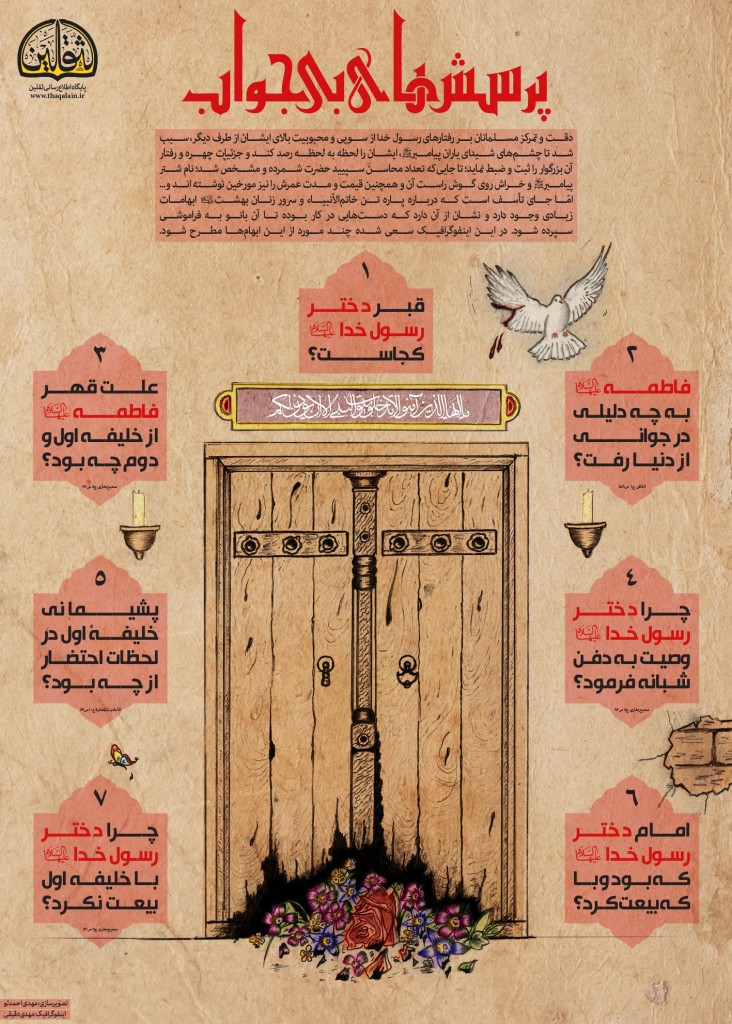 ثقلین
پایگاه اطلاع رسانی ثقلین
www.thaqalain.ir
پرسش‌های بی‌جواب
دقت و تمرکز مسلمانان بر رفتارهای رسول خدا از سویی و محبوبیت بالای ایشان از طرف دیگر، سبب
شد تا چشم‌های شیدای یاران پیامبرﷺ، ایشان را لحظه به لحظه رصد کند و جزئیات چهره و رفتار
آن بزرگوار را ثبت و ضبط نماید؛ تا جایی‌که تعداد محاسن سپیید حضرت شمرده و مشخص شد؛ نام شتر
پیامبرﷺ و خراش روی گوش راست آن و همچنین قیمت و مدت عمرش را نیز مورخین نوشته اند و...
امّا جای تأسف است که درباره پاره تن خاتم‌الأنبیاء و سرور زنان بهشت ابهامات
زیادی وجود دارد و نشان از آن دارد که دست‌هایی در کار بوده تا آن بانو به فراموشی
سپرده شود. در این اینفوگرافیک سعی شده چند مورد از این ابهام‌ها مطرح شود.
۱
قبر دختر
رسول خدا علیهاالسلام
کجاست؟
۲
فاطمه علیهاالسلام
به چه دلیلی
در جوانی
از دنیا رفت؟
۳
علت قهر
فاطمه علیهاالسلام
از خلیفه اول و
دوم چه بود؟
یا ایها الذین آمنوا لا تدخلوا بیوت النبی الا ان یؤذن لکم
۴
چرا دختر
رسول خدا علیهاالسلام
وصیت به دفن
شبانه فرمود؟
۵
پشیمانی
خلیفهٔ اول در
لحظات احتضار
از چه بود؟
۶
امام دختر
رسول خدا علیهاالسلام
که بود و با
که بیعت کرد؟
۷
چرا دختر
رسول خدا علیهاالسلام
با خلیفه اول
بیعت نکرد؟
تصویرسازی: مهدی احمدلو
اینفوگرافیک: مهدی دقیقی